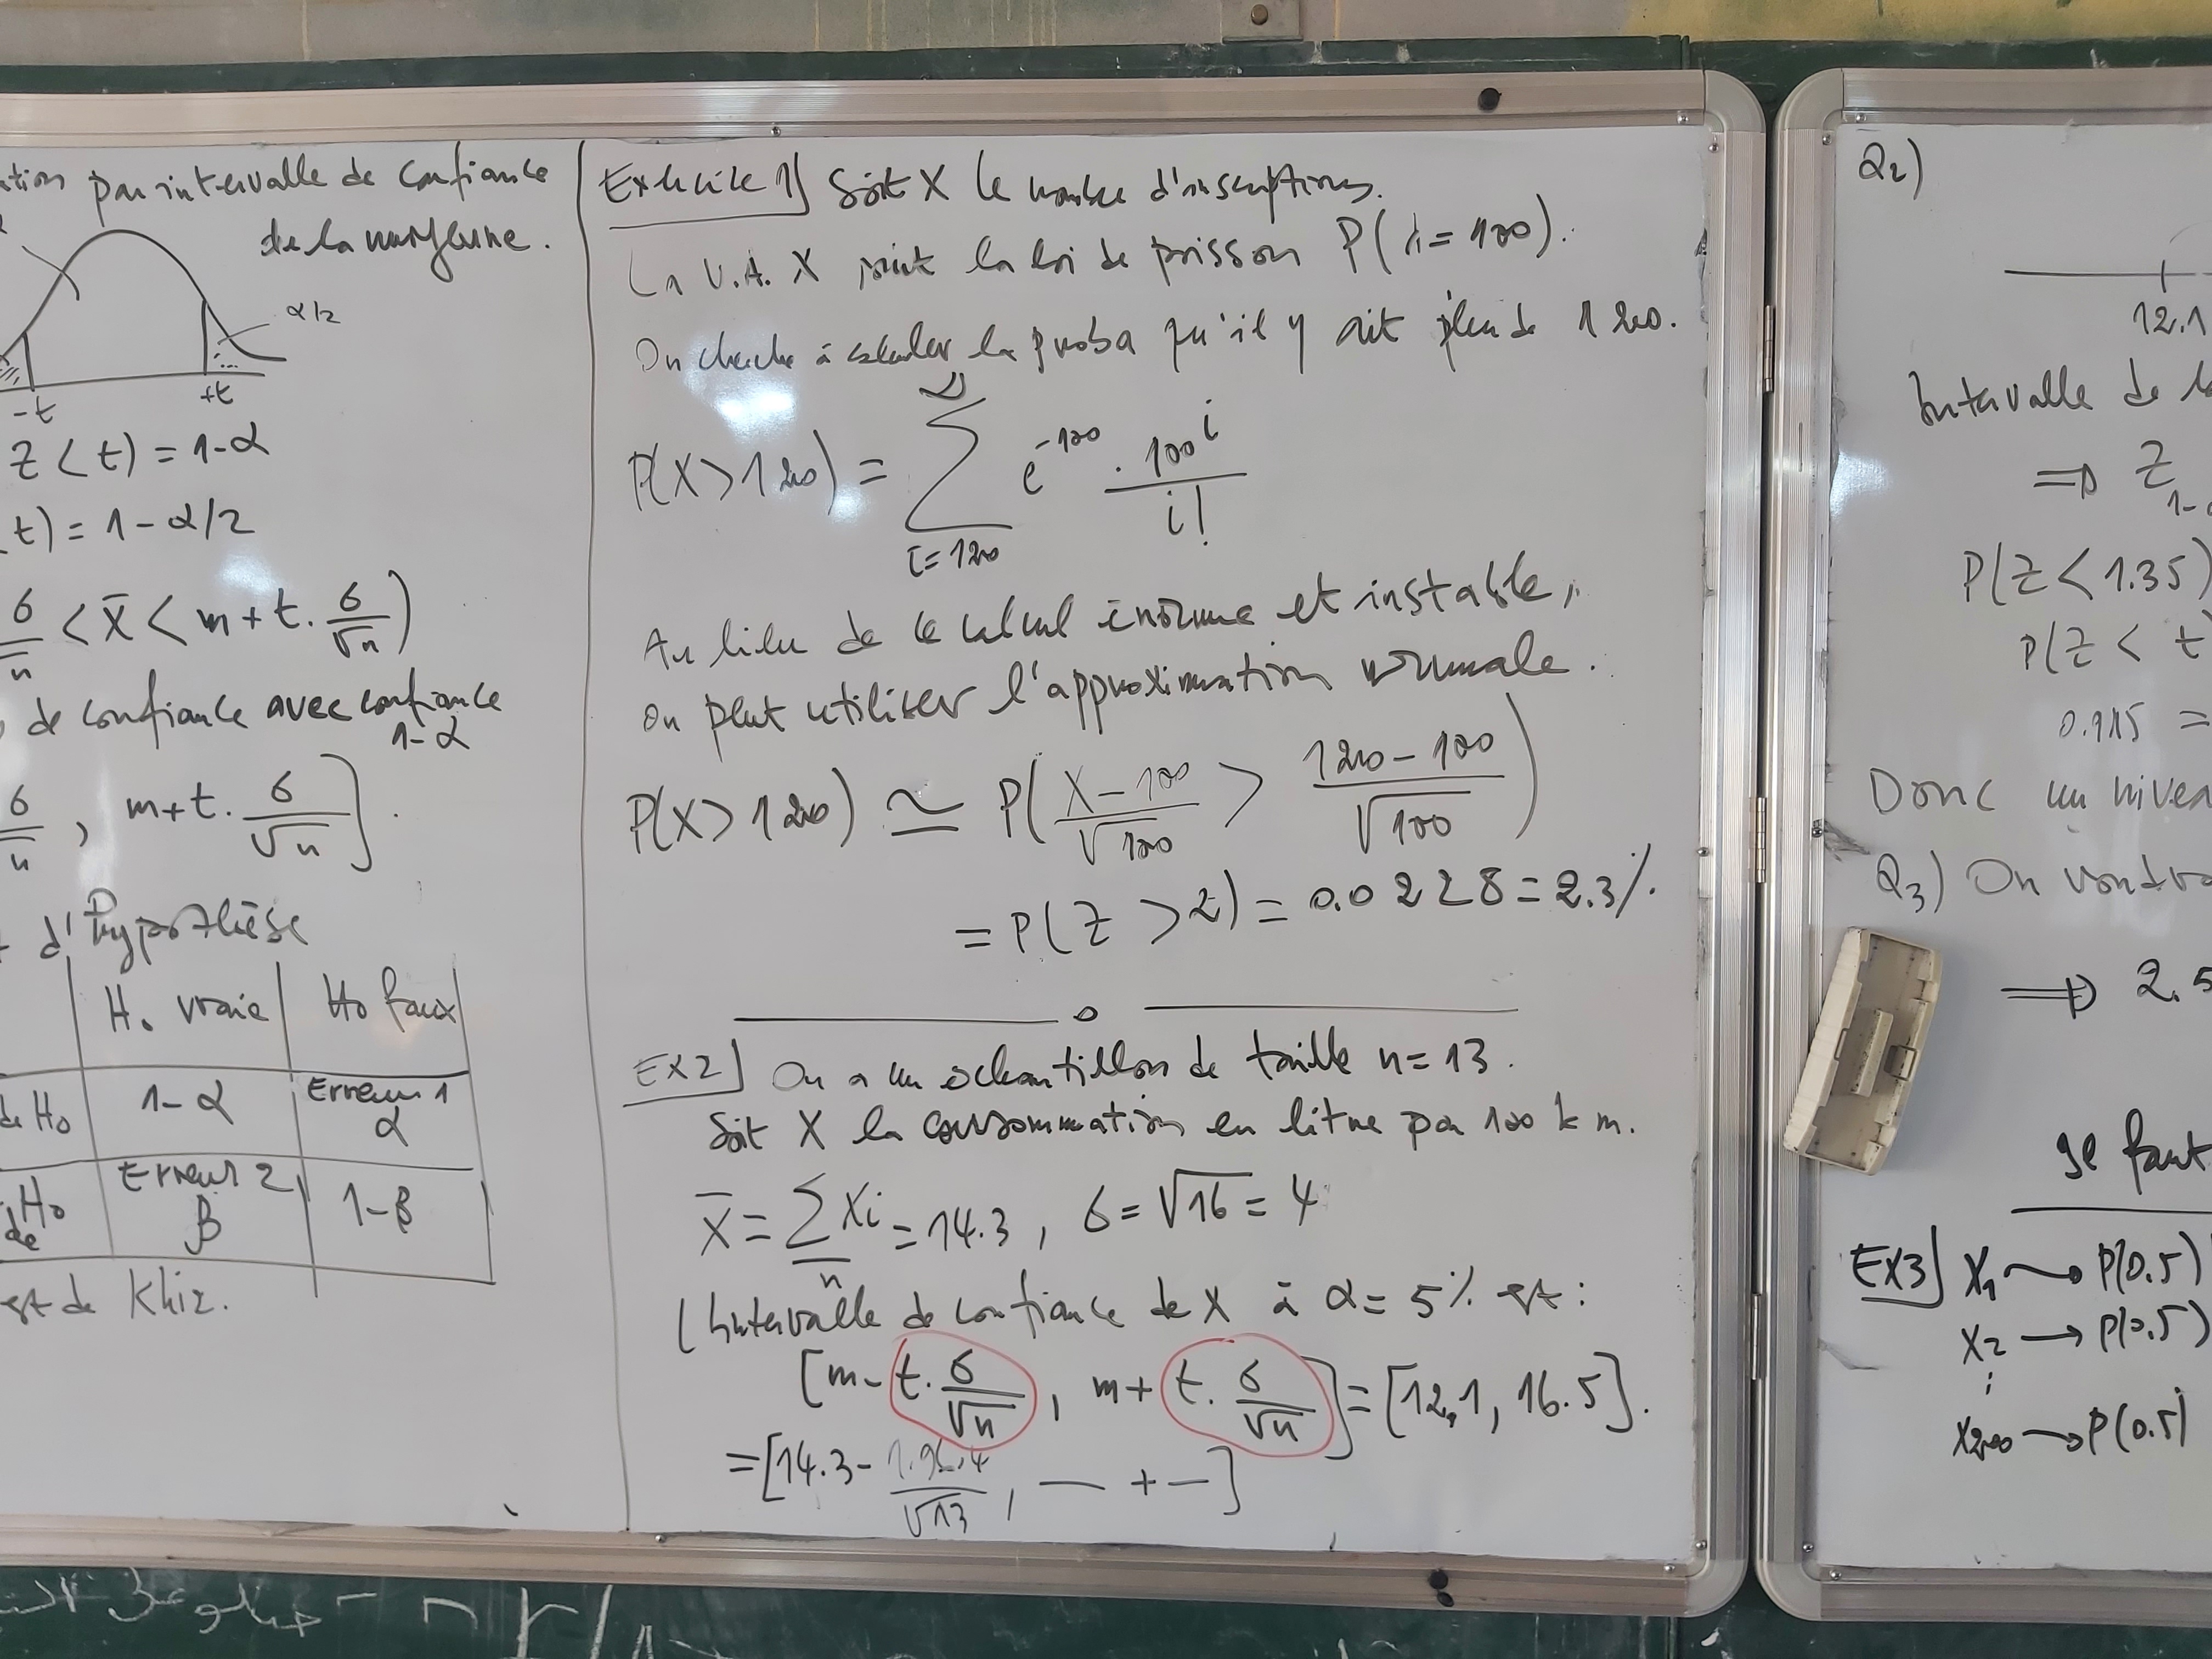 par intervalle de confiance
de la moyenne.
α/2
-t
+t
Z < t) = 1-α
t) = 1 - α/2
σ/√n < x̄ < m + t. σ/√n)
de confiance avec confiance
1-α
σ/√n , m+t. σ/√n ] .
d'hypothèse
H₀ vraie
H₀ faux
de H₀
1-α
Erreur 1
α
H₀
de
Erreur 2
β
1-β
de Khi2.
Exercice 1] Soit X le nombre d'inscriptions.
La V.A. X suit la loi de poisson P(λ=100).
On cherche à calculer la proba qu'il y ait plus de 120.
P(X>120) = ∑_{i=120}^{∞} e^{-100} . 100^i / i!
Au lieu de ce calcul énorme et instable,
on peut utiliser l'approximation normale.
P(X>120) ≃ P( (X-100)/√100 > (120-100)/√100 )
= P(Z > 2) = 0.0228 = 2.3%.
EX2] On a un échantillon de taille n=13.
Soit X la consommation en litre par 100 km.
X̄ = ∑Xi / n = 14.3 , σ = √16 = 4
L'intervalle de confiance de X à α = 5% est :
[m - t. σ/√n , m + t. σ/√n ] = [12,1, 16.5].
= [14.3 - 1.96.4/√13 , — + — ]
Q2)
12.1
Intervalle de
⟹ Z
P(Z < 1.35)
P(Z < t
=
Donc un
Q3) On
⟹ 2.5
faut
EX3] X₁ → P(0.5)
X₂ → P(0.5)
⋮
X₂₀₀ → P(0.5)